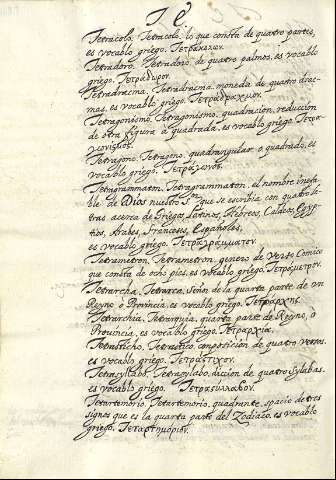 T E
Tetracolo, Tetracolo, lo que consta de quatro partes,
es vocablo griego, Τετράκωλον.
Tetradoro, Tetradoro de quatro palmos, es vocablo
griego, Τετράδωρον.
Tetradracma, Tetradracma, moneda de quatro drac
mas, es vocablo griego, Τετράδραχμον.
Tetragonismo, Tetragonismo, quadracion, reduccion
de otra figura a quadrada, es vocablo griego, Τετρα
γωνισμος.
Tetragono, Tetragono, quadrangular, o quadrado, es
vocablo griego, Τετράγωνος.
Tetragrammaton, Tetragrammaton, el nombre inefa
ble de Dios nuestro Sr. que se escribia con quatro le
tras acerca de Griegos, Latinos, Hebreos, Caldeos, Egyp
tios, Arabes, Franceses, Españoles,
es vocablo griego, Τετραγράμματον.
Tetrametron, Tetrametron, genero de Verso Comico
que consta de ocho pies, es vocablo griego, Τετράμετρον.
Tetrarcha, Tetrarca, Señor de la quarta parte de un
Reyno, o Provincia, es vocablo griego, Τετράρχης.
Tetrarchia, Tetrarquia, quarta parte de Reyno, o
Provincia, es vocablo griego, Τετραρχία.
Tetrastecho, Tetrastico, composicion de quatro versos,
es vocablo griego, Τετράστιχον.
Tetrasyllabo, Tetrasylabo, diccion de quatro sylabas,
es vocablo griego, Τετρασύλλαβον.
Tetartemorio, Tetartemorio, quadrante, spacio de tres
signos que es la quarta parte del Zodiaco, es vocablo
griego, Τεταρτημόριον.